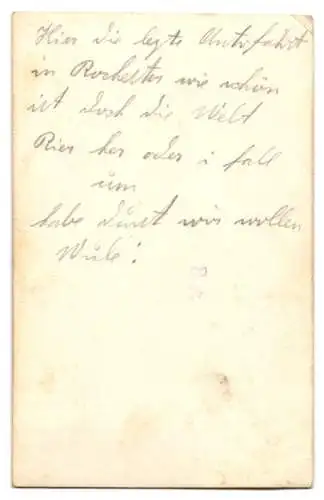 Hier die lezte Autofahrt
in Rochester wie schön
ist doch die Welt
Bier her oder i fall
um
habe durst wir wollen